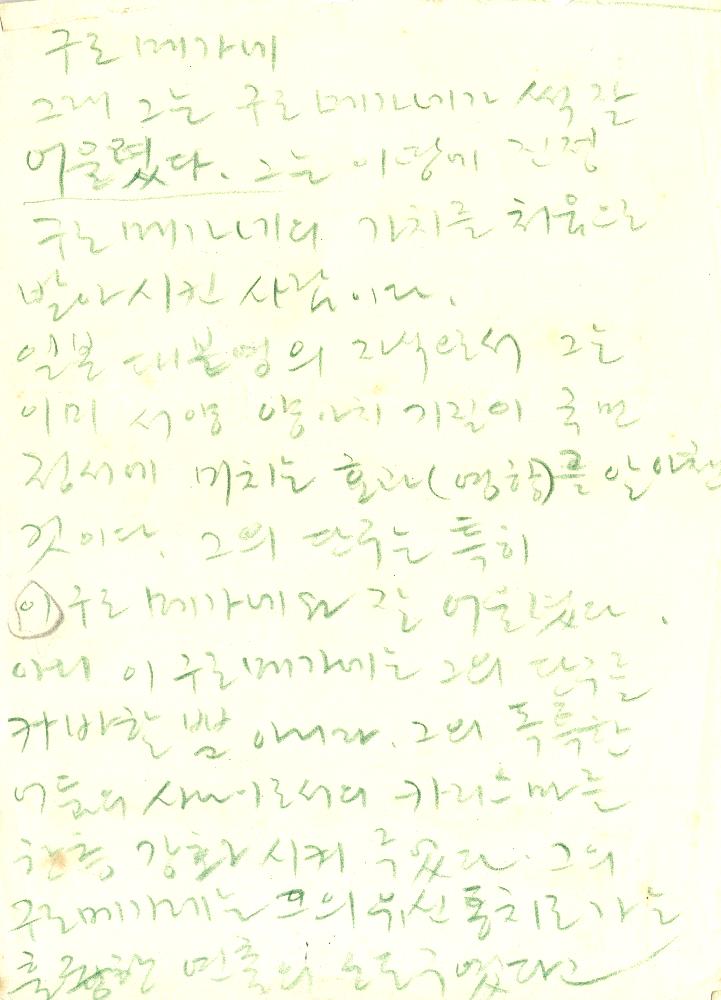 구로 메가네
그래 그는 구로 메가네가 썩 잘
어울렸다. 그는 이땅에 진정
구로 메가네의 가치를 처음으로
발아시킨 사람이다.
일본 대본영의 자식으로서 그는
이미 서양 양아치 기질이 국민
정서에 미치는 효과(영향)를 알아챈
것이다. 그의 단구는 특히
이 구로 메가네와 잘 어울렸다.
아니 이 구로메가네는 그의 단구를
카바할 뿐 아니라. 그의 독특한
어둠의 사나이로서의 카리스마를
한층 강화 시켜 주었다. 그의
구로메가네는 그의 위신 통치로 가는
훌륭한 연출의 도구였다고